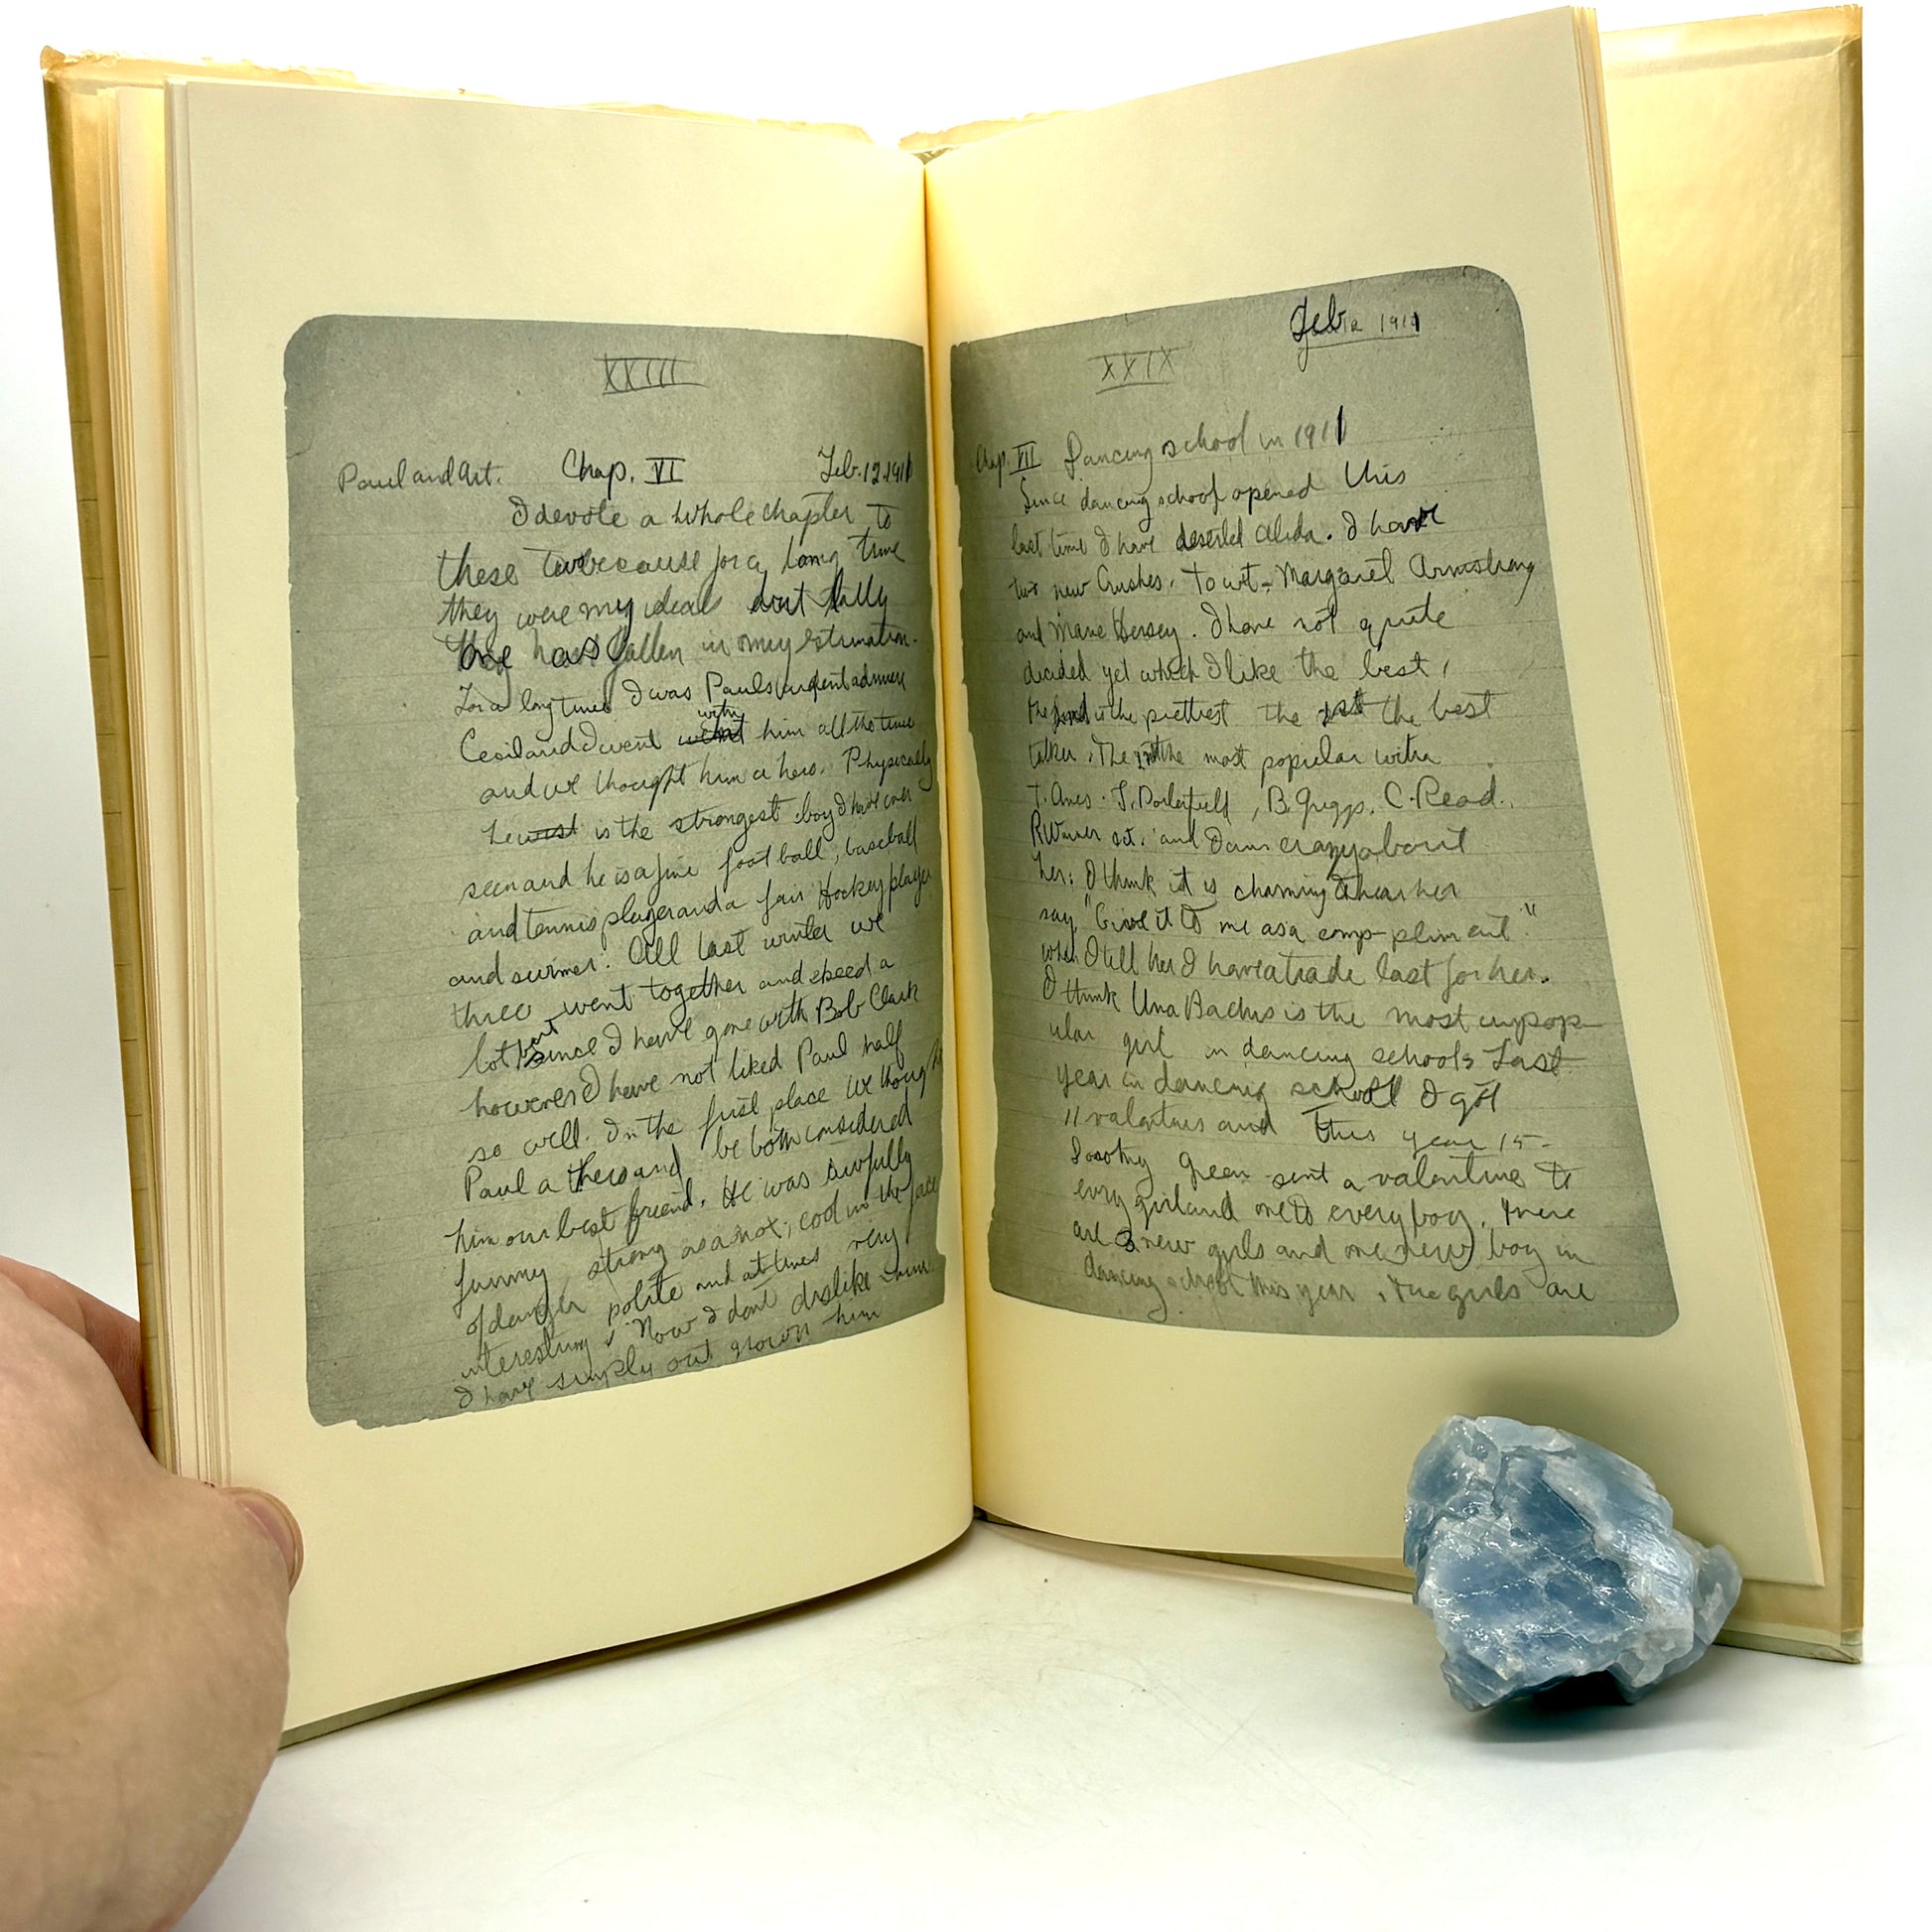 XXIII
Paul and Art. Chap. VI Feb. 12 1911
I devote a whole chapter to
these two because for a long time
they were my ideals but lately
one has fallen in my estimation.
For a long time I was Pauls ardent admirer
Cecil and I went with him all the time
and we thought him a hero. Physically
he is the strongest boy I have ever
seen and he is a fine foot ball, baseball
and tennis player and a fair Hockey player
and swimer. All last winter we
three went together and
lot but since I have gone with Bob Clark
however I have not liked Paul half
so well. In the first place we thought
Paul a hero and we both considered
him our best friend. He was awfully
funny strong as an ox, cool in the face
of danger polite and at times very
interesting. Now I dont dislike him
I have simply out grown him
Feb 1911
XXIX
Chap. VII Dancing school in 1911
Since dancing school opened this
last time I have deserted Alida. I have
two new Crushes. To wit - Margaret Armstrong
and Marie Hersey. I have not quite
decided yet which I like the best.
the 2nd is the prettiest the 1st the best
talker. The 2nd the most popular with
T. Ames. J. Porterfield, B. Griggs, C. Read.,
R. Warner ect. and I am crazy about
her. I think it is charming to hear her
say "Give it to me as a comp-pliment"
when I tell her I have a trade last for her.
I think Una Bachus is the most unpop-
ular girl in dancing school. Last
year in dancing school I got
11 valentines and this year 15-
Dorothy Green sent a valentine to
every girl and one to every boy. There
are 3 new girls and one new boy in
dancing school this year. The girls are